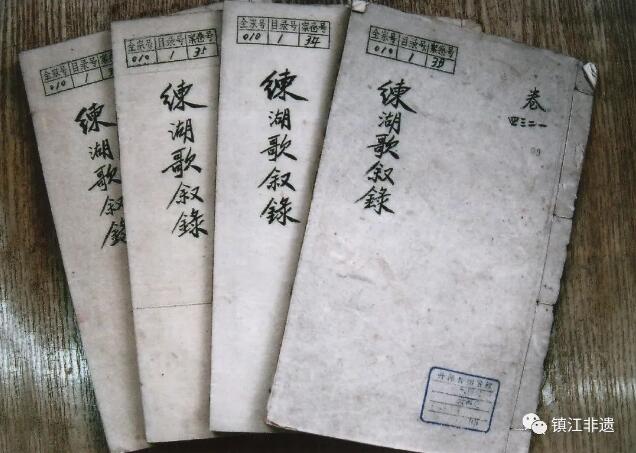 全宗号 目录号 案卷号
010 1
練湖歌叙錄
全宗号 目录号 案卷号
010 1 35
練湖歌叙錄
全宗号 目录号 案卷号
010 1 34
練湖歌叙錄
全宗号 目录号 案卷号
010 1 33
練湖歌叙錄
卷
四三二一
镇江非遗